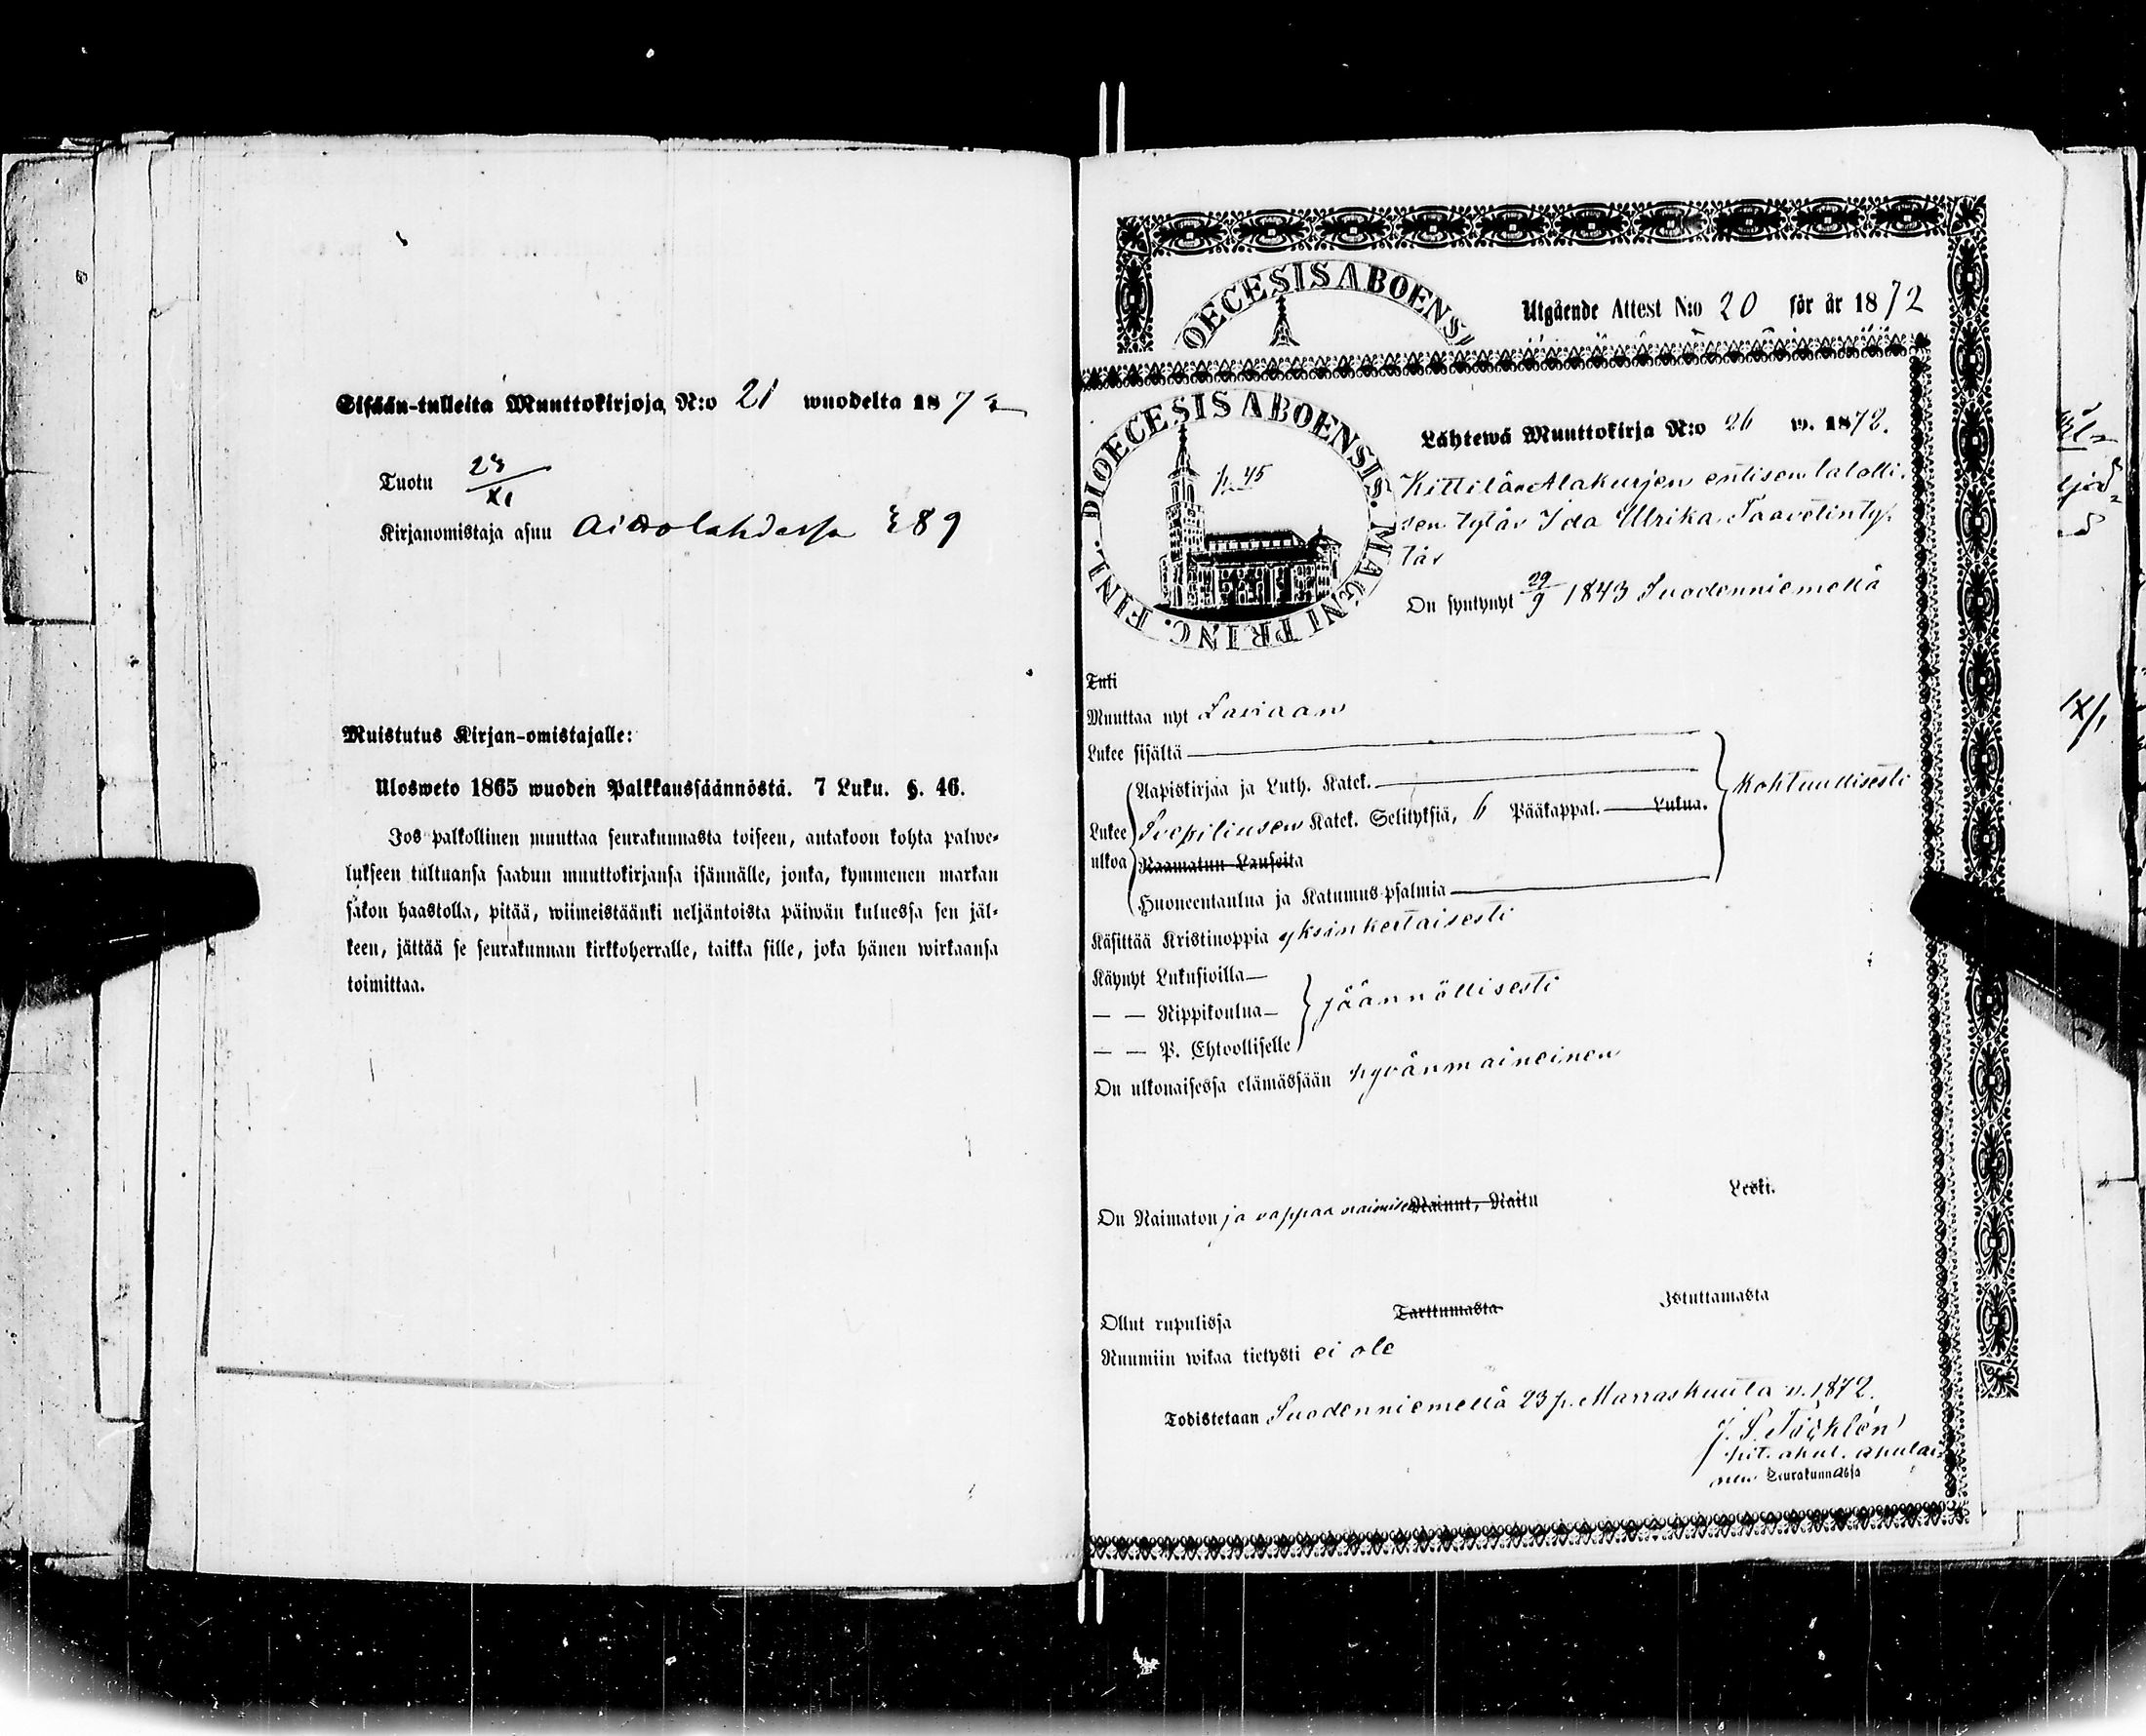 Sisään-tulleita Muuttokirjoja N:o 21 wuodelta 1872
Tuotu 23/XI
Kirjanomistaja asuu Aisolahdessa 289
Muistutus Kirjan-omistajalle:
Ulosweto 1865 wuoden Palkkaussäännöstä. 7 Luku. §. 46.
Jos palkollinen muuttaa seurakunnasta toiseen, antakoon kohta palwe-
lukseen tultuansa saadun muuttokirjansa isännälle, jonka, kymmenen markan
sakon haastolla, pitää, wiimeistäänki neljäntoista päiwän kuluessa sen jäl-
keen, jättää se seurakunnan kirkkoherralle, taikka sille, joka hänen wirkaansa
toimittaa.
OECESIS ABOENSI
Utgående Attest N:o 20 för år 1872
DIOECESIS ABOENSIS. MAGNI PRINC. FINL.
p. 45
Lähtewä Muuttokirja N:o 26 w. 1872.
Kittilän Alakurjen entisen talolli-
sen tytär Ida Ulrika Taavetinty-
tär
On syntynyt 29/9 1843 Suodenniemellä
Tuli
Muuttaa nyt Laviaan
Lukee sisältä
Aapiskirjaa ja Luth. Katek.
kohtuullisesti
Lukee ulkoa
Svebiliusen Katek. Selityksiä, 6 Pääkappal. Lukua.
Raamatun Lauseita
Huoneentaulua ja Katumus-psalmia
Käsittää Kristinoppia yksinkertaisesti
Käynyt Lukusioilla
— — Rippikoulua
jäännöllisesti
— — P. Ehtoolliselle
On ulkonaisessa elämässään hyvänmaineinen
On Naimaton ja vappaa Nainut, Naitu Leski.
Ollut rupulissa Tarttumasta Istuttamasta
Ruumiin wikaa tietysti ei ole
Todistetaan Suodenniemellä 23 p. Marraskuuta v. 1872.
Seurakunnassa